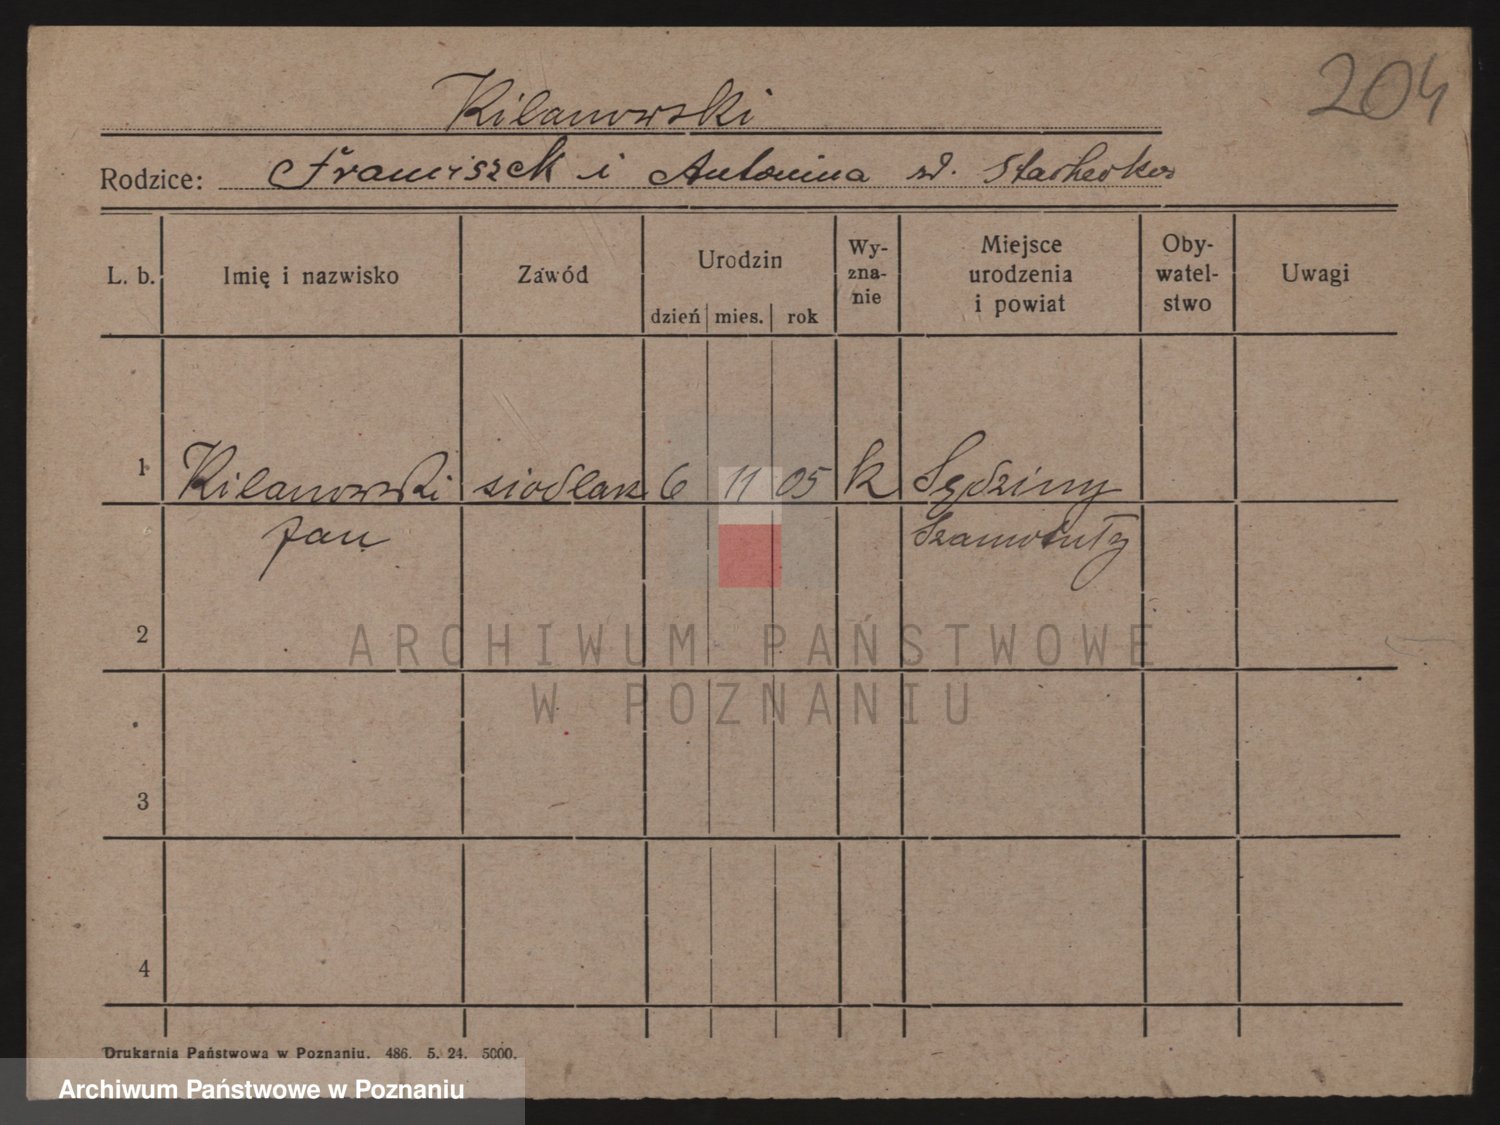 204
Kilanowski
Rodzice: Franciszek i Antonina zd.
L. b. Imię i nazwisko Zawód Urodzin dzień mies. rok Wy- zna- nie Miejsce urodzenia i powiat Oby- watel- stwo Uwagi
1 Kilanowski siodlarz 6 11 05 k Sędziny
Jan Szamotuły
2
ARCHIWUM PAŃSTWOWE
W POZNANIU
3
4
Drukarnia Państwowa w Poznaniu. 486. 5. 24. 5000.
Archiwum Państwowe w Poznaniu